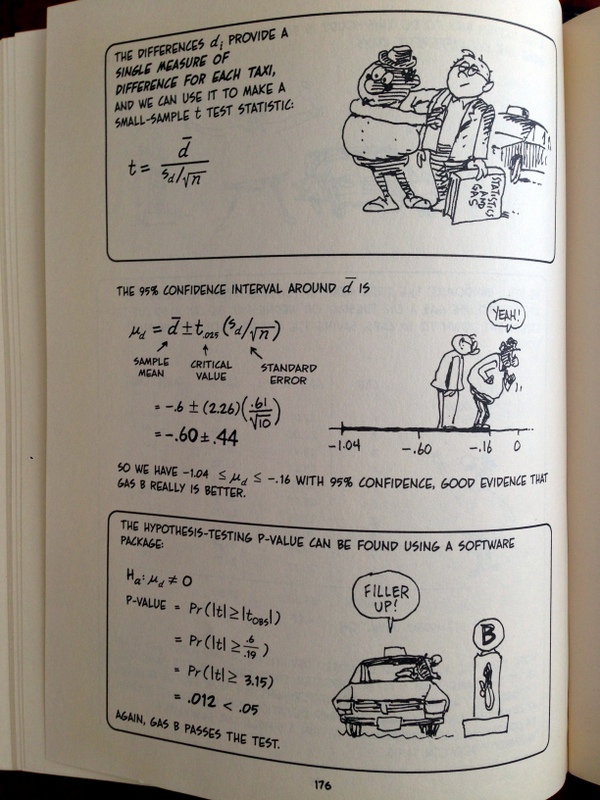 THE DIFFERENCES dᵢ PROVIDE A
SINGLE MEASURE OF
DIFFERENCE FOR EACH TAXI,
AND WE CAN USE IT TO MAKE A
SMALL-SAMPLE t TEST STATISTIC:
t = d̄ / (s_d/√n)
STATISTICS
AND
GAS
THE 95% CONFIDENCE INTERVAL AROUND d̄ IS
μ_d = d̄ ± t.₀₂₅ (s_d/√n)
SAMPLE
MEAN
CRITICAL
VALUE
STANDARD
ERROR
= -.6 ± (2.26)(.61/√10)
= -.60 ± .44
YEAH!
-1.04 -.60 -.16 0
SO WE HAVE -1.04 ≤ μ_d ≤ -.16 WITH 95% CONFIDENCE, GOOD EVIDENCE THAT
GAS B REALLY IS BETTER.
THE HYPOTHESIS-TESTING P-VALUE CAN BE FOUND USING A SOFTWARE
PACKAGE:
Hₐ: μ_d ≠ 0
P-VALUE = Pr(|t| ≥ |t_OBS|)
= Pr(|t| ≥ .6/.19)
= Pr(|t| ≥ 3.15)
= .012 < .05
AGAIN, GAS B PASSES THE TEST.
FILLER
UP!
B
176